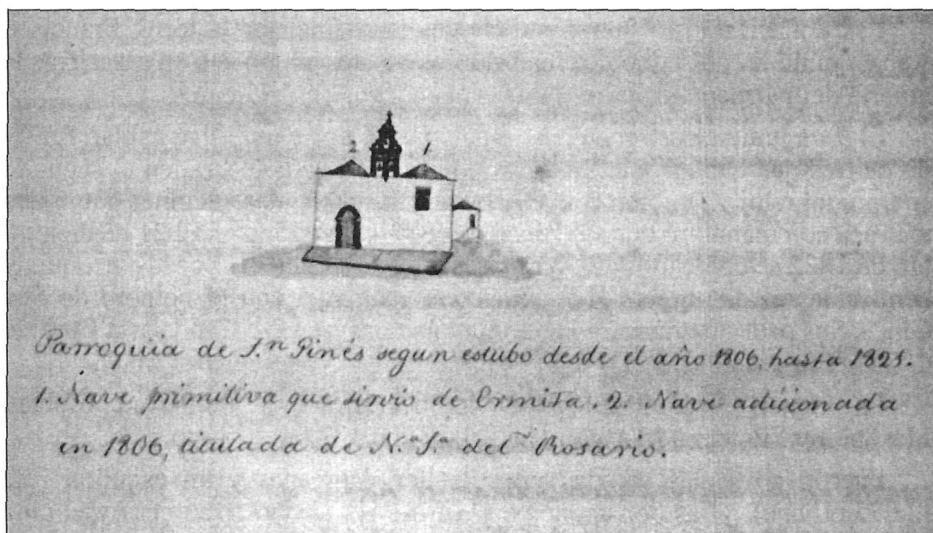 2 1
Parroquia de S.ⁿ Ginés segun estubo desde el año 1806, hasta 1821.
1. Nave primitiva que sirvio de Ermita. 2. Nave adicionada
en 1806, titulada de N.ª S.ª del Rosario.